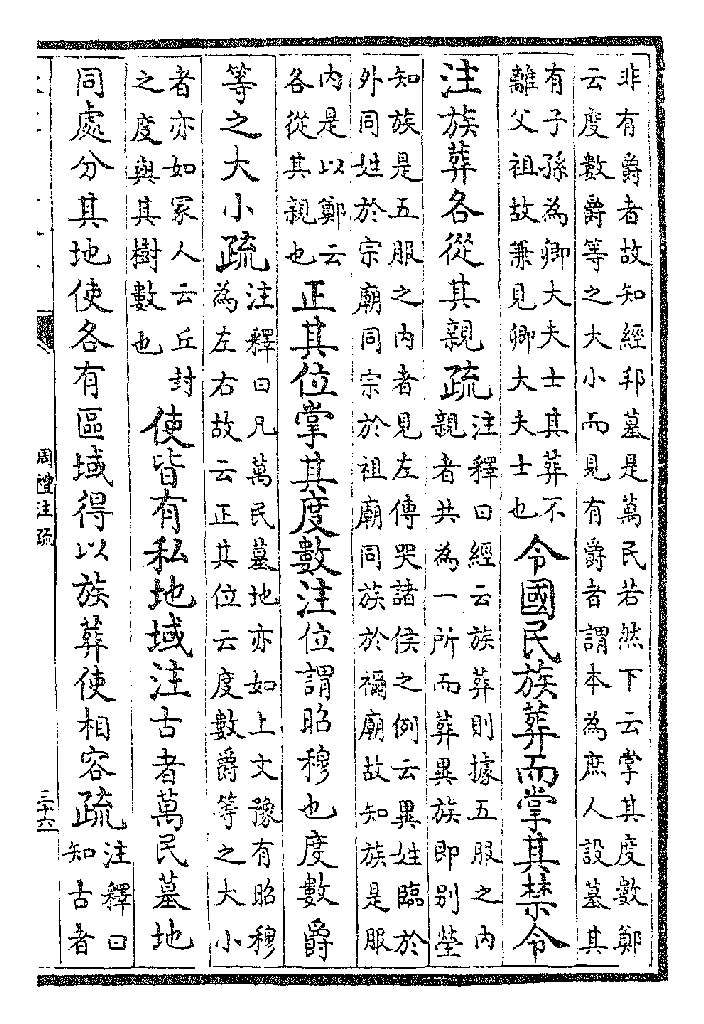 非有爵者故知經邦墓是萬民若然下云掌其度數鄭
云度數爵等之大小而見有爵者謂本為庶人設墓其
有子孫為卿大夫士其葬不
離父祖故兼見卿大夫士也
令國民族葬而掌其禁令
注族葬各從其親疏
注釋曰經云族葬則據五服之內
親者共為一所而葬異族即別塋
知族是五服之內者見左傳哭諸侯之例云異姓臨於
外同姓於宗廟同宗於祖廟同族於禰廟故知族是服
內是以鄭云
各從其親也
正其位掌其度數注位謂昭穆也度數爵
等之大小疏
注釋曰凡萬民墓地亦如上文豫有昭穆
為左右故云正其位云度數爵等之大小
者亦如冢人云丘封
之度與其樹數也
使皆有私地域注古者萬民墓地
同處分其地使各有區域得以族葬使相容疏
注釋曰
知古者
周禮注疏
三十六